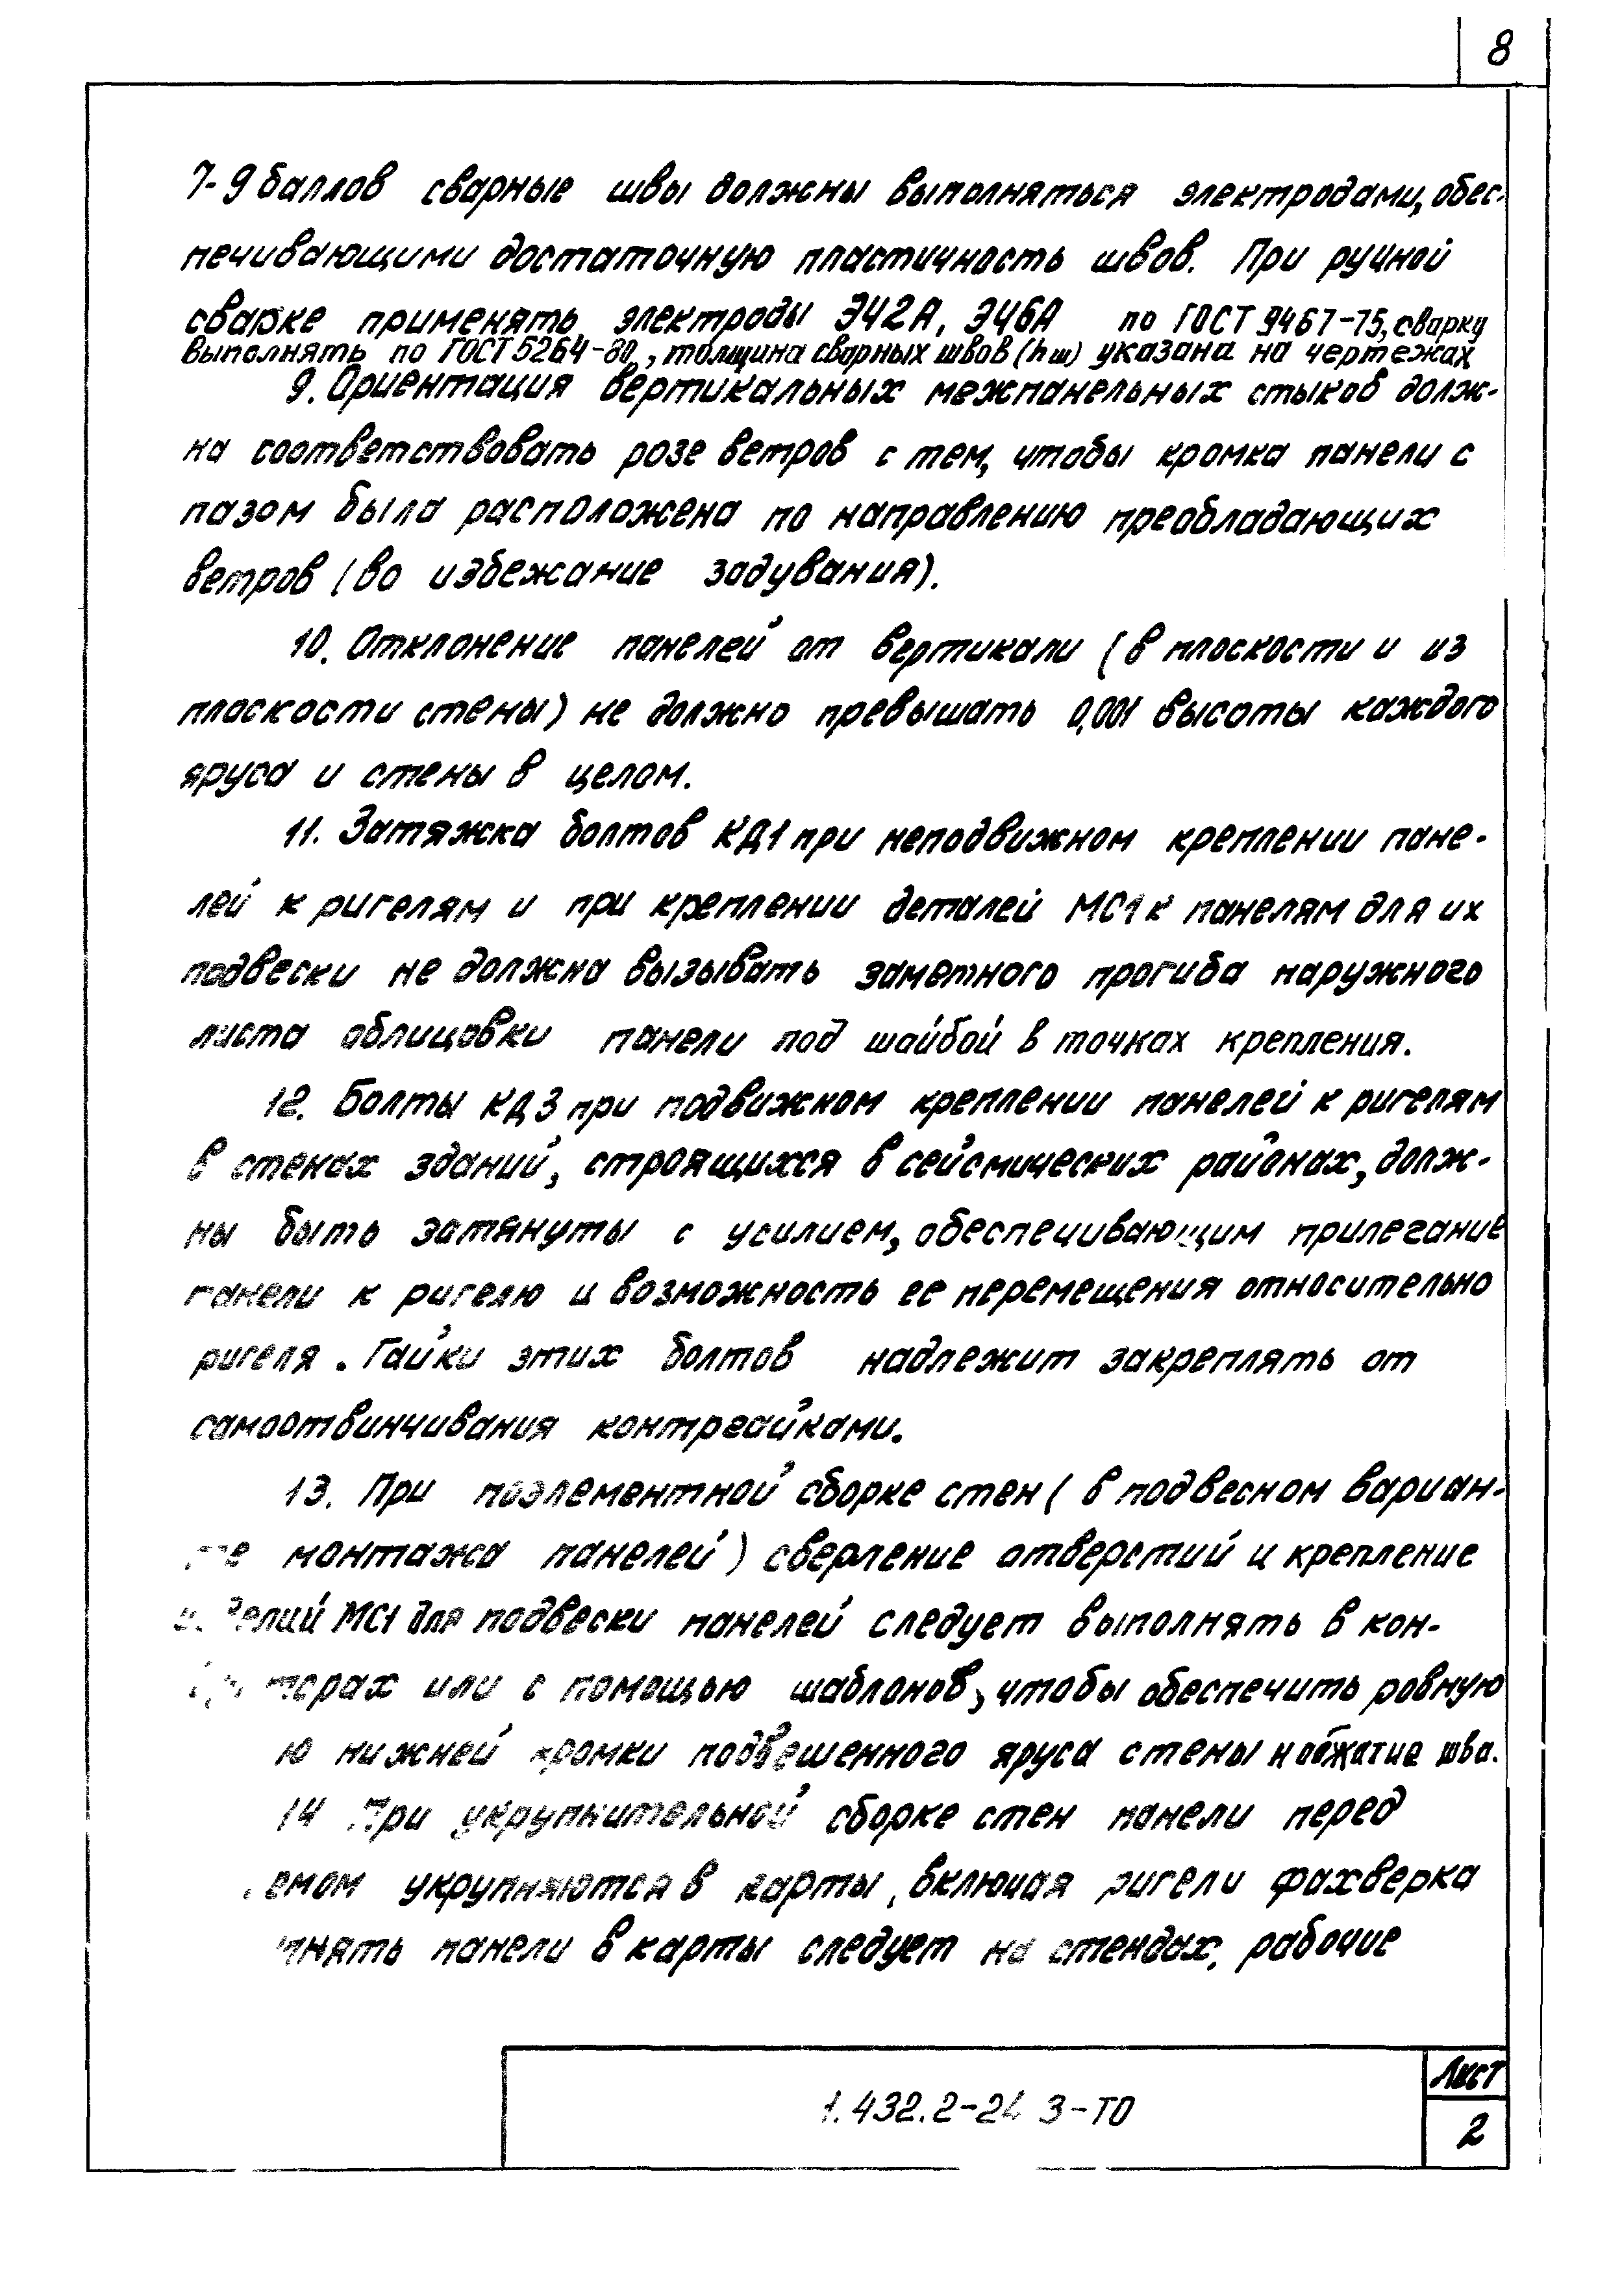 8
7-9 баллов сварные швы должны выполняться электродами, обес-
печивающими достаточную пластичность швов. При ручной
сварке применять электроды Э42А, Э46А по ГОСТ 9467-75, сварку
выполнять по ГОСТ 5264-80, толщина сварных швов (hш) указана на чертежах
9. Ориентация вертикальных межпанельных стыков долж-
на соответствовать розе ветров с тем, чтобы кромка панели с
пазом была расположена по направлению преобладающих
ветров (во избежание задувания).
10. Отклонение панелей от вертикали (в плоскости и из
плоскости стены) не должно превышать 0,001 высоты каждого
яруса и стены в целом.
11. Затяжка болтов КД1 при неподвижном креплении пане-
лей к ригелям и при креплении деталей МС1 к панелям для их
подвески не должна вызывать заметного прогиба наружного
листа облицовки панели под шайбой в точках крепления.
12. Болты КД3 при подвижном креплении панелей к ригелям
в стенах зданий, строящихся в сейсмических районах, долж-
ны быть затянуты с усилием, обеспечивающим прилегание
панели к ригелю и возможность ее перемещения относительно
ригеля. Гайки этих болтов надлежит закреплять от
самоотвинчивания контргайками.
13. При поэлементной сборке стен (в подвесном вариан-
те монтажа панелей) сверление отверстий и крепление
МС1 для подвески панелей следует выполнять в кон-
или с помощью шаблонов, чтобы обеспечить ровную
нижней кромки подвешенного яруса стены и обжатие шва.
14 При укрупнительной сборке стен панели перед
укрупняются в карты, включая ригели фахверка
панели в карты следует на стендах, рабочие
1.432.2-24 3-ТО
Лист
2